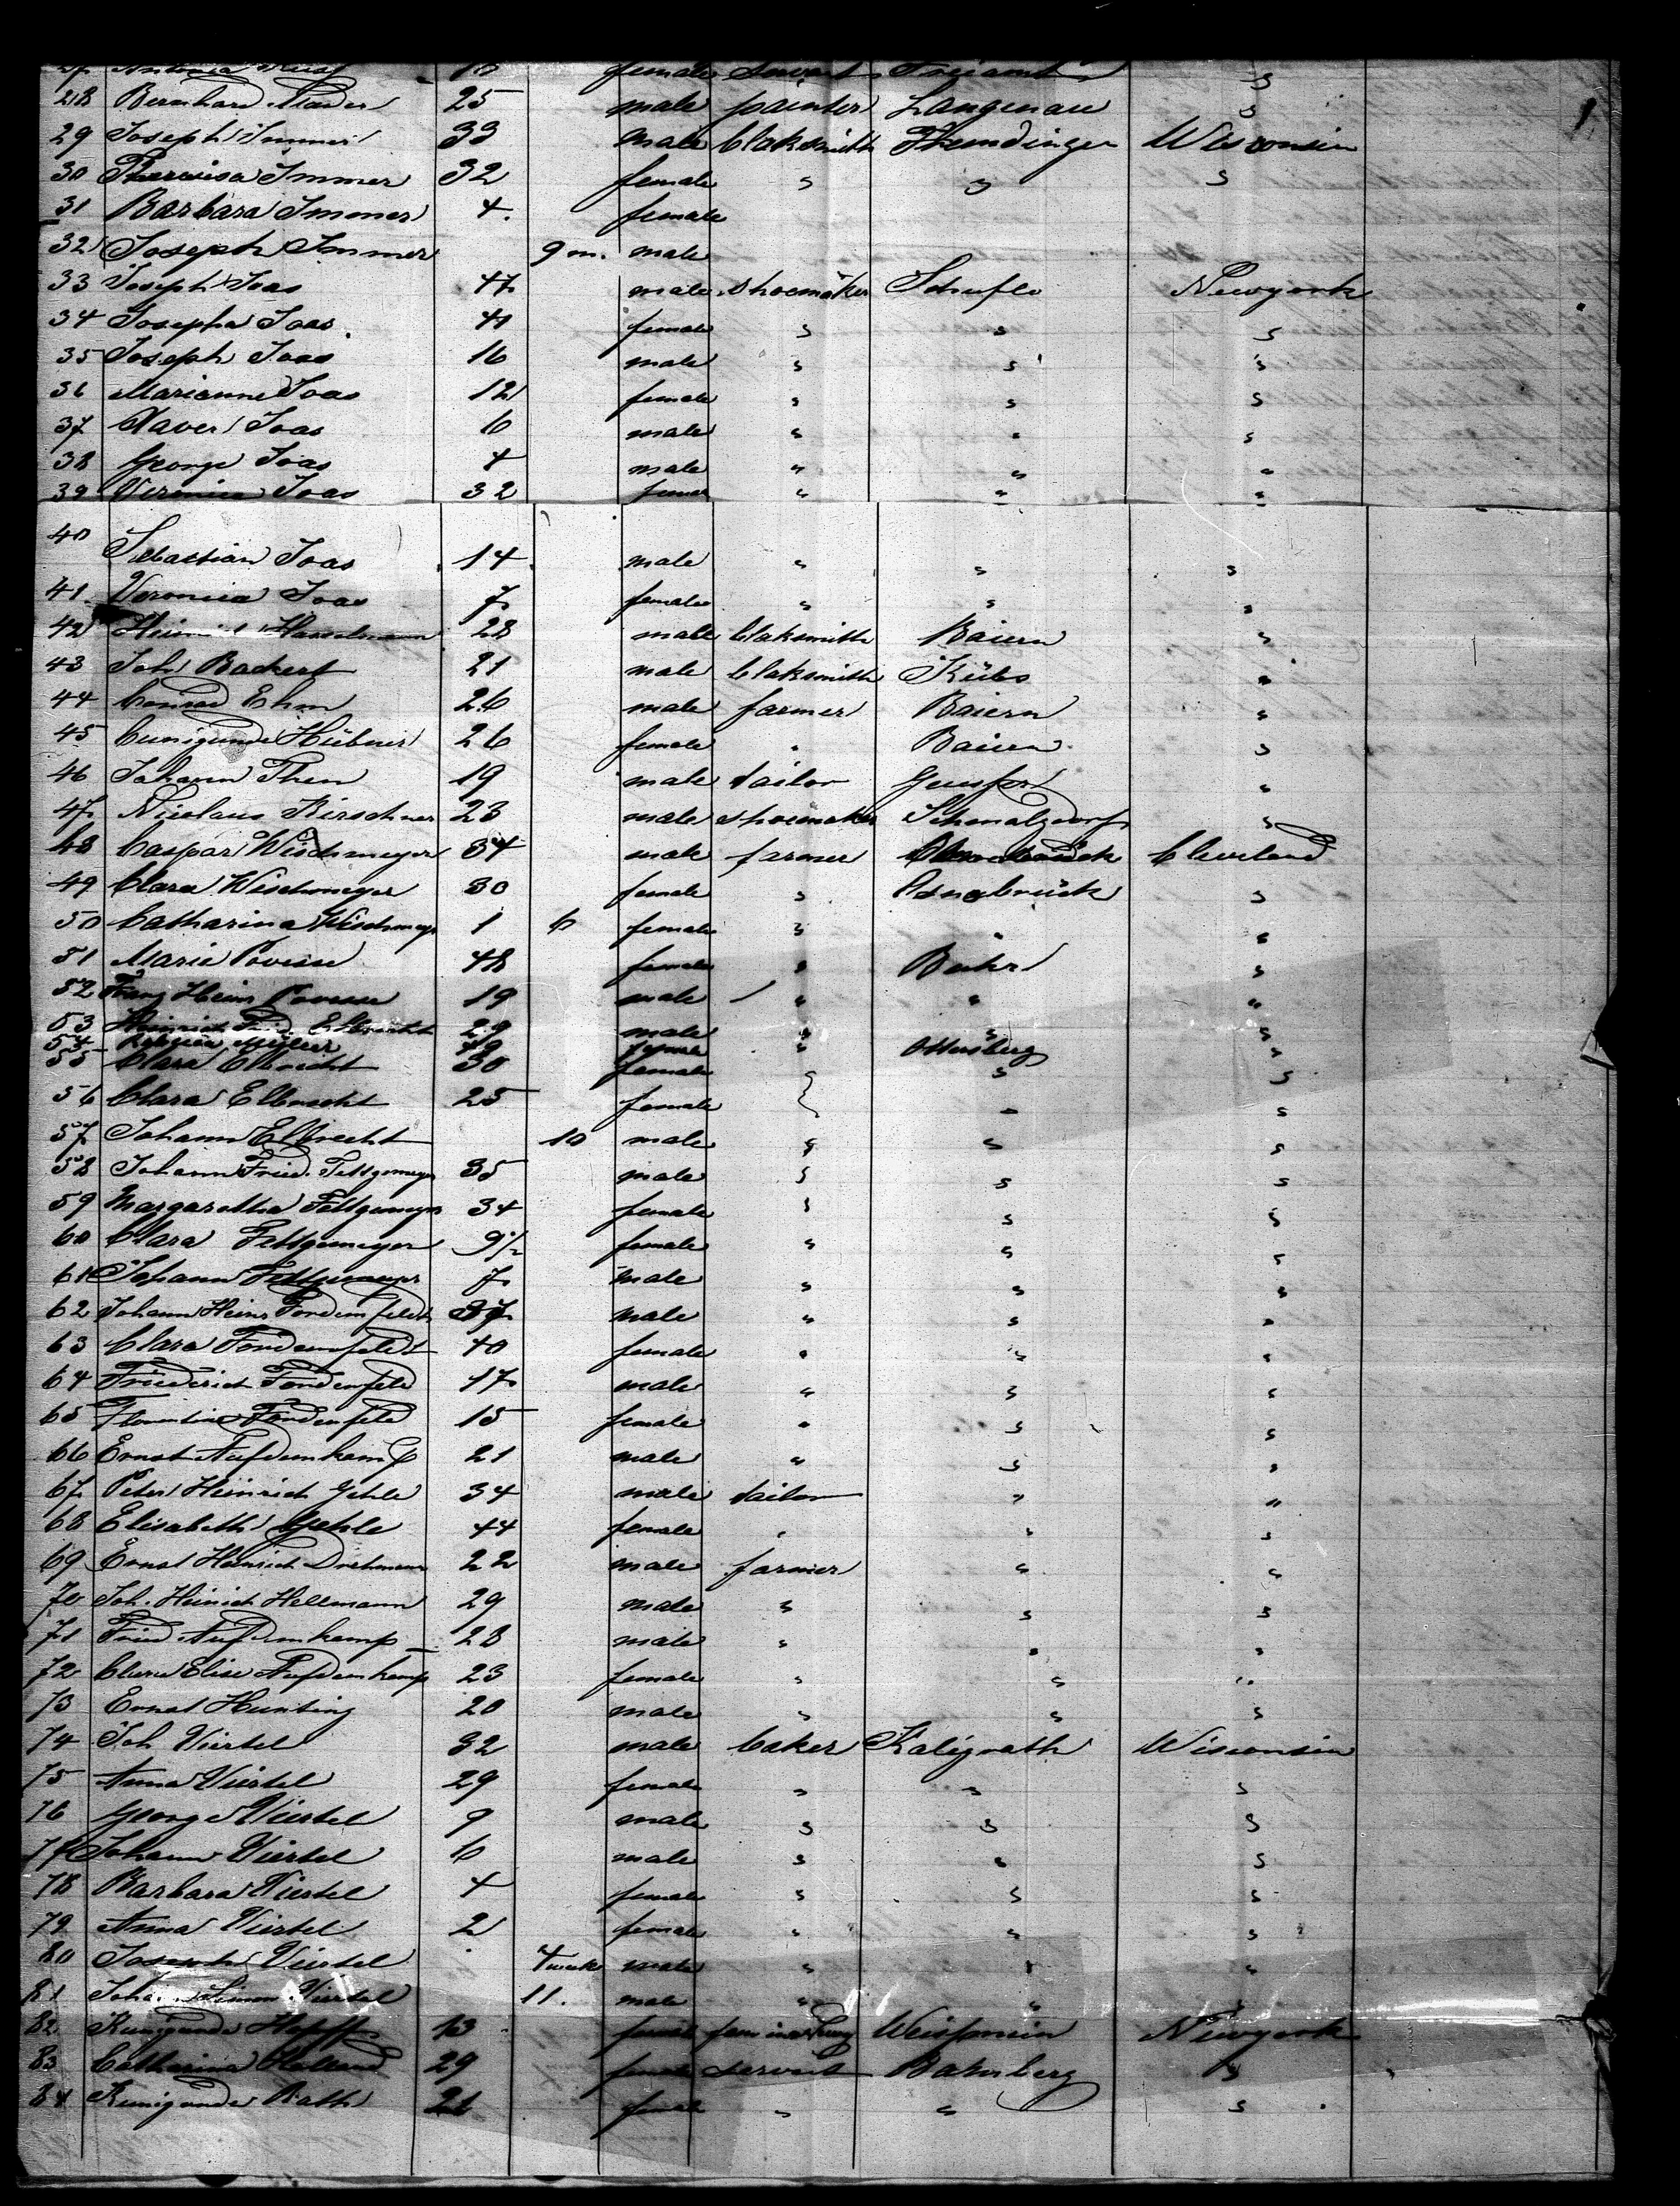 27 Antonia 18 female Servant Freiamt "
28 Bernhard Mader 25 male painter Langenau "
29 Joseph Immer 33 male blaksmith Wisconsin
30 Theresisa Immer 32 female " " "
31 Barbara Immer 4. female
32 Joseph Immer 9 m. male
33 Joseph Joas 47 male shoemaker Newyork
34 Josepha Joas 41 female " " "
35 Joseph Joas 16 male " " "
36 Marianne Joas 12 female " " "
37 Xaver Joas 6 male " " "
38 George Joas 4 male " " "
39 Veronica Joas 32 " " "
40 Sebastian Joas 14 male " " "
41 Veronica Joas 7 female " " "
42 28 male blaksmith Baiern "
43 Joh Backert 21 male blaksmith Kübs "
44 Conrad Ehm 26 male farmer Baiern "
45 Cunigunde Hübner 26 female " Baiern "
46 Johann Then 19 male tailor "
47 Nicolaus Kirschner 23 male shoemaker Schmalzdorf "
48 Caspar Wischmeyer 34 male farmer Cleveland
49 Clara Wischmeyer 30 female " Osnabrück "
50 Catharina Wischmeyer 1 6 female " " "
51 Marie 48 female " "
52 Franz Heinr 19 male " " "
53 Heinrich Fried. Elbrecht 29 male " " "
54 Müller female " Ottersberg "
55 Clara Elbrecht 30 female " "
56 Clara Elbrecht 25 female " "
57 Johann Elbrecht 10 male " " "
58 Johann Fried. Fettgemeyer 35 male " " "
59 Margaretha Fettgemeyer 34 female " " "
60 Clara Fettgemeyer 9½ female " " "
61 Johann Fettgemeyer 7 male " " "
62 Johann Heinr Fordemfeldt 37 male " " "
63 Clara Fordemfeldt 40 female " " "
64 Friederich Fordemfeld 17 male " " "
65 Florentine Fordemfeld 15 female " " "
66 Ernst Aufdemkamp 21 male " " "
67 Peter Heinrich Gehle 34 male tailor " "
68 Elisabeth Gehle 44 female " " "
69 Ernst Heinrich 22 male farmer " "
70 Joh. Heinrich Hellmann 29 male " " "
71 Fried Aufdemkamp 28 male " " "
72 Clara Elise Aufdemkamp 23 female " " "
73 Ernst Hunting 20 male " " "
74 Joh Viertel 32 male baker Wisconsin
75 Anna Viertel 29 female " " "
76 George Viertel 9 male " " "
77 Johann Viertel 6 male " " "
78 Barbara Viertel 4 female " " "
79 Anna Viertel 2 female " " "
80 Joseph Viertel 4 weeks male " " "
81 Johann Simon Viertel 11. male " " "
82 Kunigunde female Newyork
83 Catharina Holland 29 female servant Bahmberg "
84 Kunigunde Rath female " " "